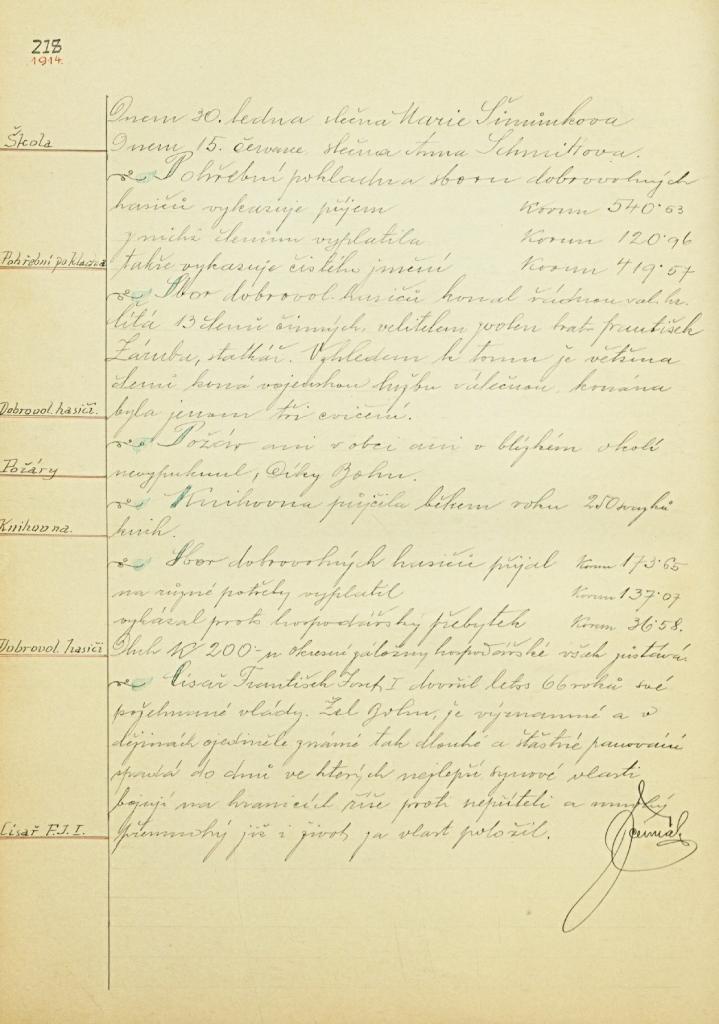 218
1914.
Dnem 30. ledna slečna Marie Šimůnkova
Škola
Dnem 15. července slečna Anna Schmittova.
Pohřební pokladna sboru dobrovolných
hasičů vykazuje příjem Korun 540·53
z nichž členům vyplatila Korun 120·96
Pohřební pokladna
takže vykazuje čistého jmění Korun 419·57
Sbor dobrovol. hasičů konal řádnou val. hr.
čítá 13 členů činných, velitelem zvolen bratr František
Záruba, statkář. Vzhledem k tomu je většina
členů koná vojenskou službu válečnou, konána
Dobrovol. hasiči.
byla jenom tři cvičení.
Požár ani v obci ani v blízkém okolí
Požáry
nevypuknul, Díky Bohu.
Knihovna půjčila během roku 250 svazků
Knihovna.
knih.
Sbor dobrovolných hasičů přijal Korun 173·65
na různé potřeby vyplatil Korun 137·07
vykázal proto hospodářský přebytek Korun 36·58.
Dobrovol. hasiči
Dluh K 200- u okresní záložny hospodářské však zůstává.
Císař František Josef I dovršil letos 66 roků své
požehnané vlády. Žel Bohu, je významné a v
dějinách ojediněle známé tak dlouhé a šťastné panování
spadá do dnů ve kterých nejlepší synové vlasti
bojují na hranicích říše proti nepříteli a mnohý
Císař F. J. I.
přemnohý již i život za vlast položil.